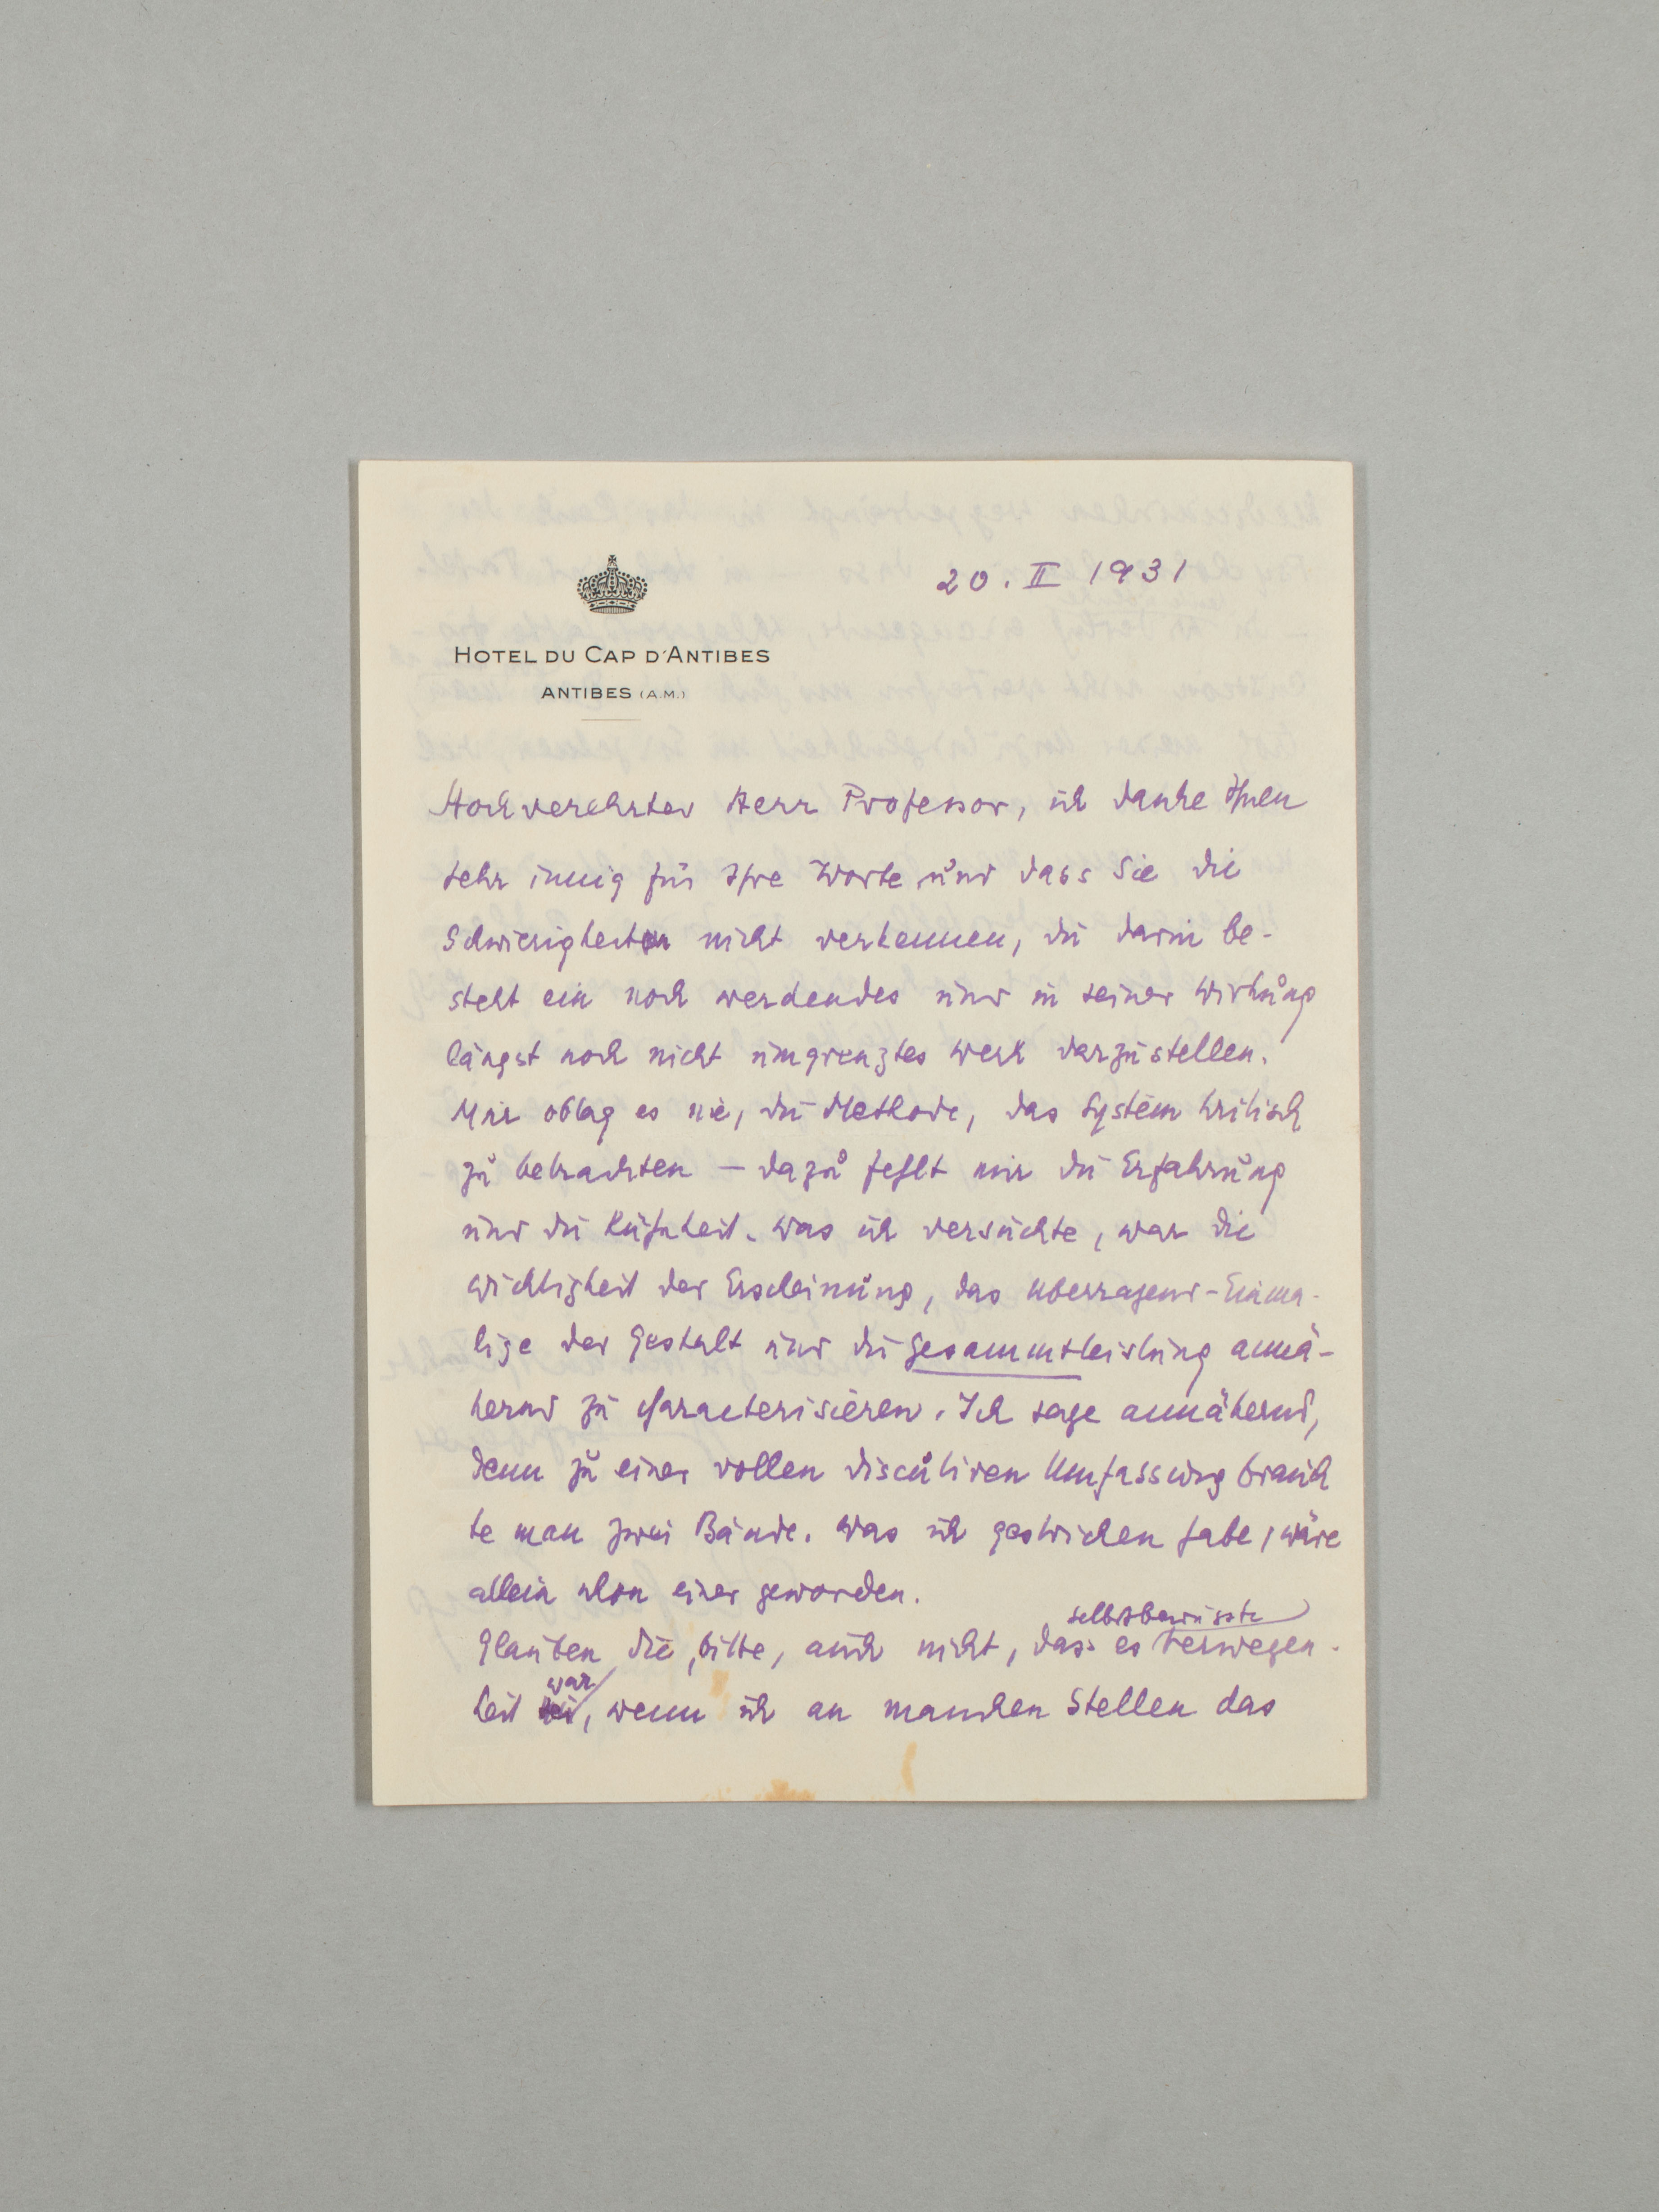 20. II 1931
HOTEL DU CAP D'ANTIBES
ANTIBES (A.M.)
Hochverehrter Herr Professor, ich danke Ihnen
sehr innig für Ihre Worte und dass Sie die
Schwierigkeiten nicht verkennen, die darin be-
steht ein noch werdendes und in seiner Wirkung
längst noch nicht umgrenztes Werk darzustellen.
Mir oblag es nie, die Methode, das System kritisch
zu betrachten – dazu fehlt mir die Erfahrung
und die Kühnheit. Was ich versuchte, war die
Wichtigkeit der Erscheinung, das Überragend-Einma-
lige der Gestalt und die Gesammtleistung annä-
hernd zu characterisieren. Ich sage annähernd,
denn zu einer vollen discutiven Umfassung brauch
te man zwei Bände. Was ich gestrichen habe, wäre
allein schon einer geworden.
selbstbewusste
Glauben Sie, bitte, auch nicht, dass es Verwegen-
war
heit sei, wenn ich an manchen Stellen das